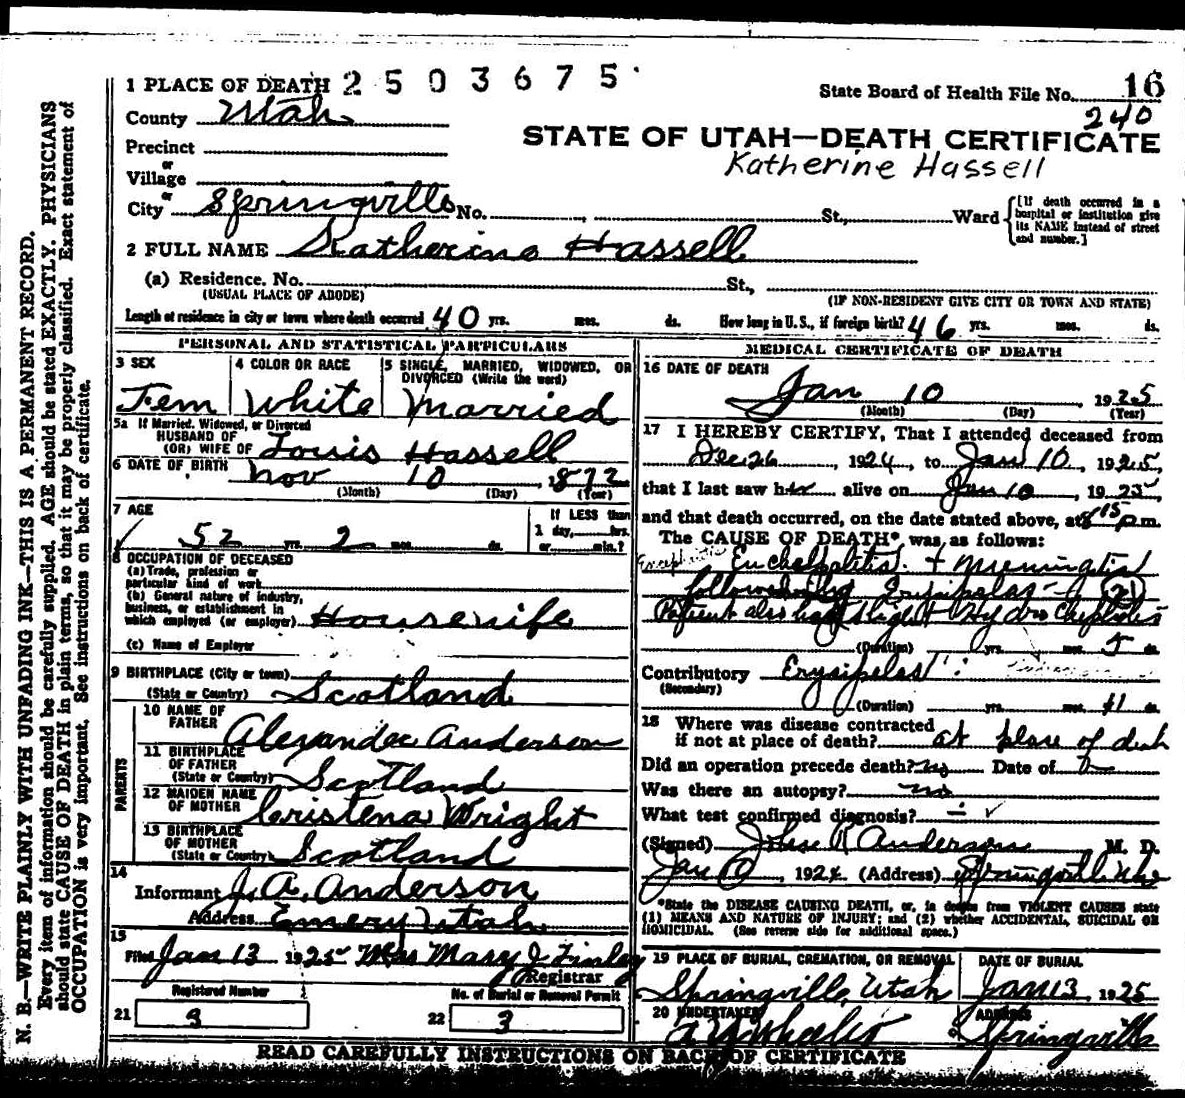 1 PLACE OF DEATH 2503675
State Board of Health File No. 16
240
County Utah
STATE OF UTAH—DEATH CERTIFICATE
Katherine Hassell
Precinct
or
Village
or
City Springville No. , St., Ward
[If death occurred in a hospital or institution give its NAME instead of street and number.]
2 FULL NAME Katherine Hassell
(a) Residence. No. St.,
(USUAL PLACE OF ABODE) (IF NON-RESIDENT GIVE CITY OR TOWN AND STATE)
Length of residence in city or town where death occurred 40 yrs. mos. ds. How long in U. S., if foreign birth? 46 yrs. mos. ds.
PERSONAL AND STATISTICAL PARTICULARS
3 SEX 4 COLOR OR RACE 5 SINGLE, MARRIED, WIDOWED, OR DIVORCED (Write the word)
Fem White Married
5a If Married, Widowed, or Divorced
HUSBAND OF
(OR) WIFE OF Louis Hassell
6 DATE OF BIRTH Nov 10 1872
(Month) (Day) (Year)
7 AGE If LESS than
1 day, hrs.
52 yrs. 2 mos. ds. or min.?
8 OCCUPATION OF DECEASED
(a) Trade, profession or
particular kind of work
(b) General nature of industry,
business, or establishment in
which employed (or employer) Housewife
(c) Name of Employer
9 BIRTHPLACE (City or town)
(State or Country) Scotland
PARENTS
10 NAME OF
FATHER Alexander Anderson
11 BIRTHPLACE
OF FATHER
(State or Country) Scotland
12 MAIDEN NAME
OF MOTHER Cristena Wright
13 BIRTHPLACE
OF MOTHER
(State or Country) Scotland
14
Informant J. A. Anderson
Address Emery Utah
15
Filed Jan 13 1925 Mrs Mary J Finley
Registrar
Registered Number No. of Burial or Removal Permit
21 3 22 3
MEDICAL CERTIFICATE OF DEATH
16 DATE OF DEATH
Jan 10 1925
(Month) (Day) (Year)
17 I HEREBY CERTIFY, That I attended deceased from
Dec 26, 1924, to Jan 10, 1925,
that I last saw her alive on Jan 10, 1925
and that death occurred, on the date stated above, at 8 15 p m.
The CAUSE OF DEATH* was as follows:
+ Meningitis
followed by Erysipelas 21
Patient also had slight Hydro
(Duration) yrs. mos. 5 ds.
Contributory Erysipelas
(Secondary)
(Duration) yrs. mos. 11 ds.
18 Where was disease contracted
if not at place of death? at place of death
Did an operation precede death? no Date of
Was there an autopsy? no
What test confirmed diagnosis?
(Signed) Anderson M. D.
Jan 10, 192 (Address) Springville Utah
*State the DISEASE CAUSING DEATH, or, in deaths from VIOLENT CAUSES state
(1) MEANS AND NATURE OF INJURY; and (2) whether ACCIDENTAL, SUICIDAL OR
HOMICIDAL. (See reverse side for additional space.)
19 PLACE OF BURIAL, CREMATION, OR REMOVAL DATE OF BURIAL
Springville, Utah Jan 13 1925
20 UNDERTAKER ADDRESS
Springville
READ CAREFULLY INSTRUCTIONS ON BACK OF CERTIFICATE
N. B.—WRITE PLAINLY WITH UNFADING INK—THIS IS A PERMANENT RECORD.
Every item of information should be carefully supplied. AGE should be stated EXACTLY. PHYSICIANS
should state CAUSE OF DEATH in plain terms, so that it may be properly classified. Exact statement of
OCCUPATION is very important. See instructions on back of certificate.